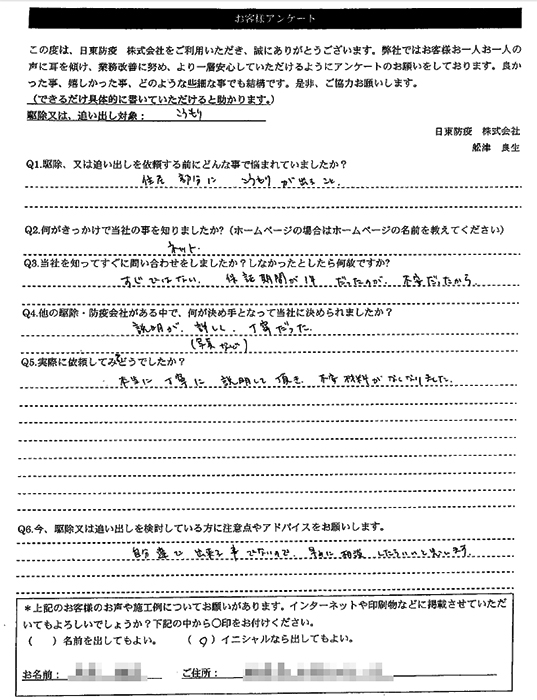 お客様アンケート
この度は、日東防疫 株式会社をご利用いただき、誠にありがとうございます。弊社ではお客様お一人お一人の
声に耳を傾け、業務改善に努め、より一層安心していただけるようにアンケートのお願いをしております。良か
った事、嬉しかった事、どのような些細な事でも結構です。是非、ご協力お願いします。
（できるだけ具体的に書いていただけると助かります。）
駆除又は、追い出し対象： こうもり
日東防疫 株式会社
舩津 良生
Q1.駆除、又は追い出しを依頼する前にどんな事で悩まれていましたか？
住居 部分に こうもり が出ること
Q2.何がきっかけで当社の事を知りましたか？（ホームページの場合はホームページの名前を教えてください）
ネット.
Q3.当社を知ってすぐに問い合わせをしましたか？しなかったとしたら何故ですか？
すぐではない. 保証期間が1年 だったのが. 不安だったから
Q4.他の駆除・防疫会社がある中で、何が決め手となって当社に決められましたか？
説明が. 詳しく. 丁寧だった.
(写真など)
Q5.実際に依頼してみてどうでしたか？
本当に 丁寧に 説明して 頂き. 不安材料が なくなりました.
Q6.今、駆除又は追い出しを検討している方に注意点やアドバイスをお願いします。
自分達で 出来る 事でないので 早めに 相談 したらいいと思います
＊上記のお客様のお声や施工例についてお願いがあります。インターネットや印刷物などに掲載させていただ
いてもよろしいでしょうか？下記の中から〇印をお付けください。
（ ）名前を出してもよい。 （〇）イニシャルなら出してもよい。
お名前： ご住所：